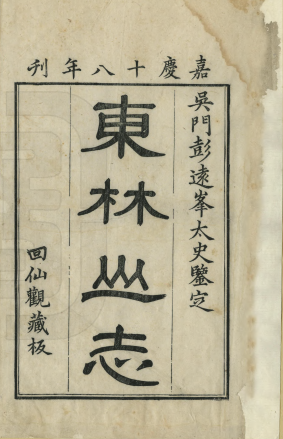 嘉慶十八年刊
吳門彭遠峯太史鑒定
東林山志
回仙觀藏板